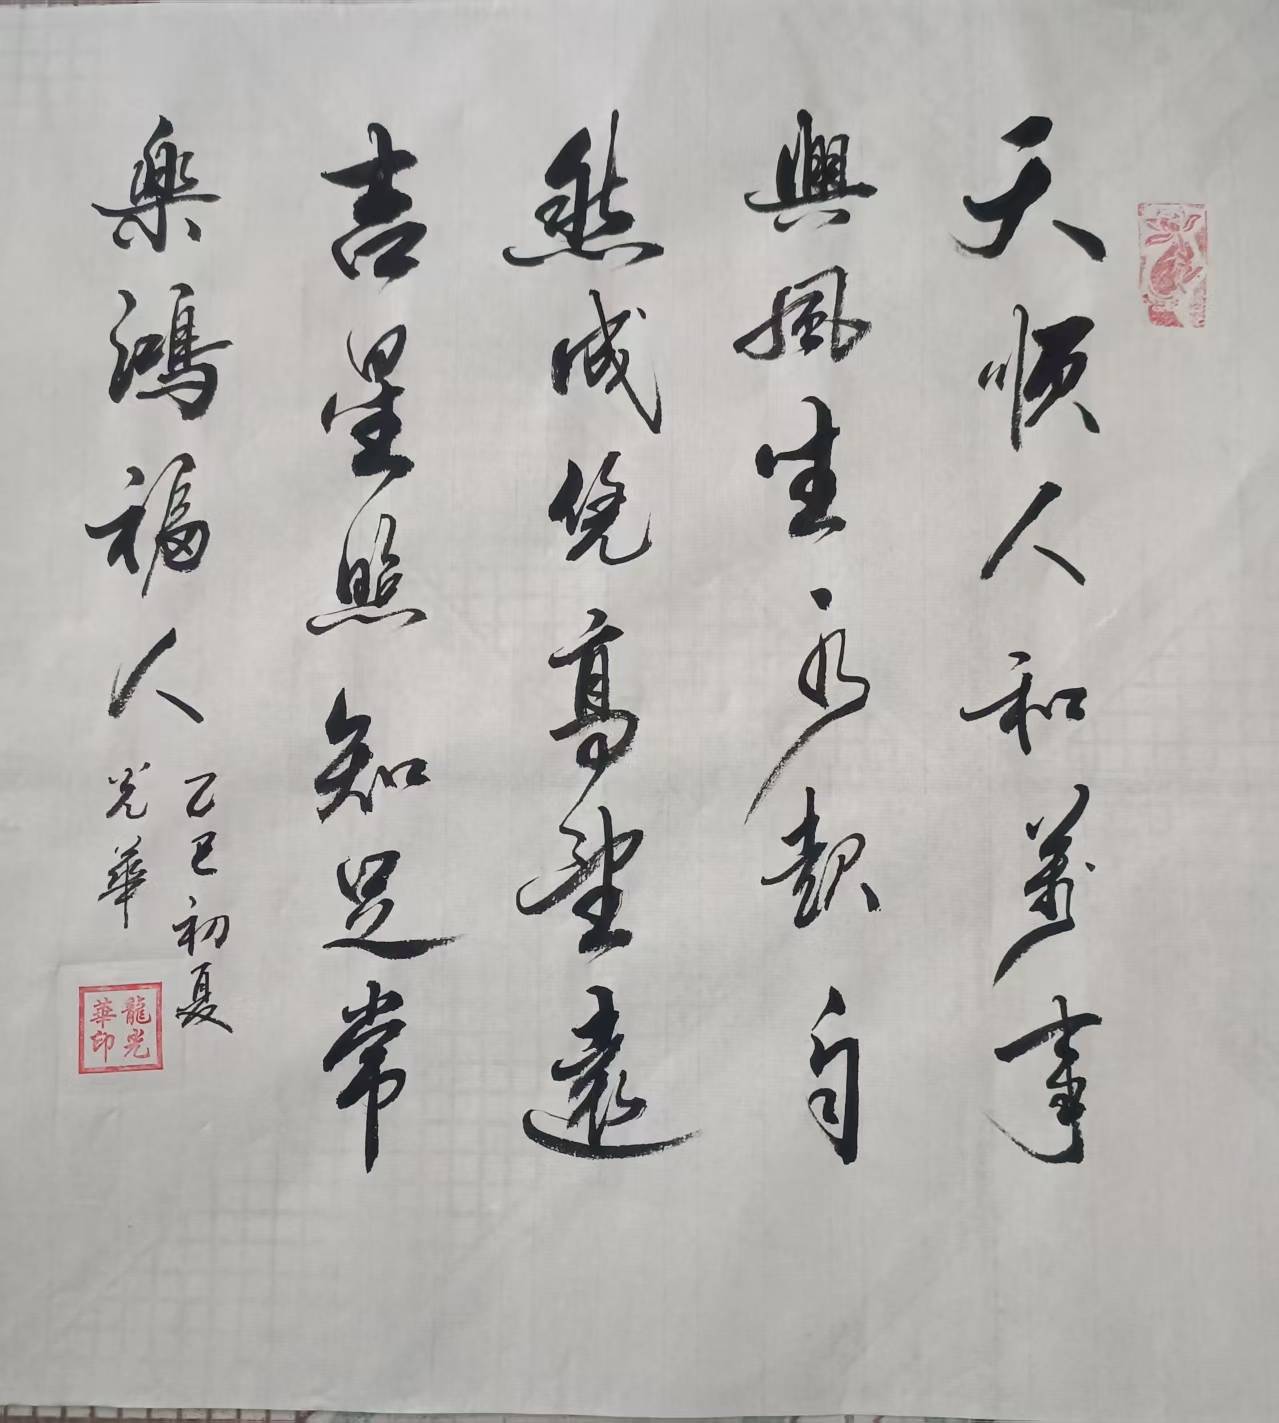 天順人和萬事
興風生水起自
然成凭高望遠
吉星照知足常
樂鴻福人
乙巳初夏
光華
龍光
華印